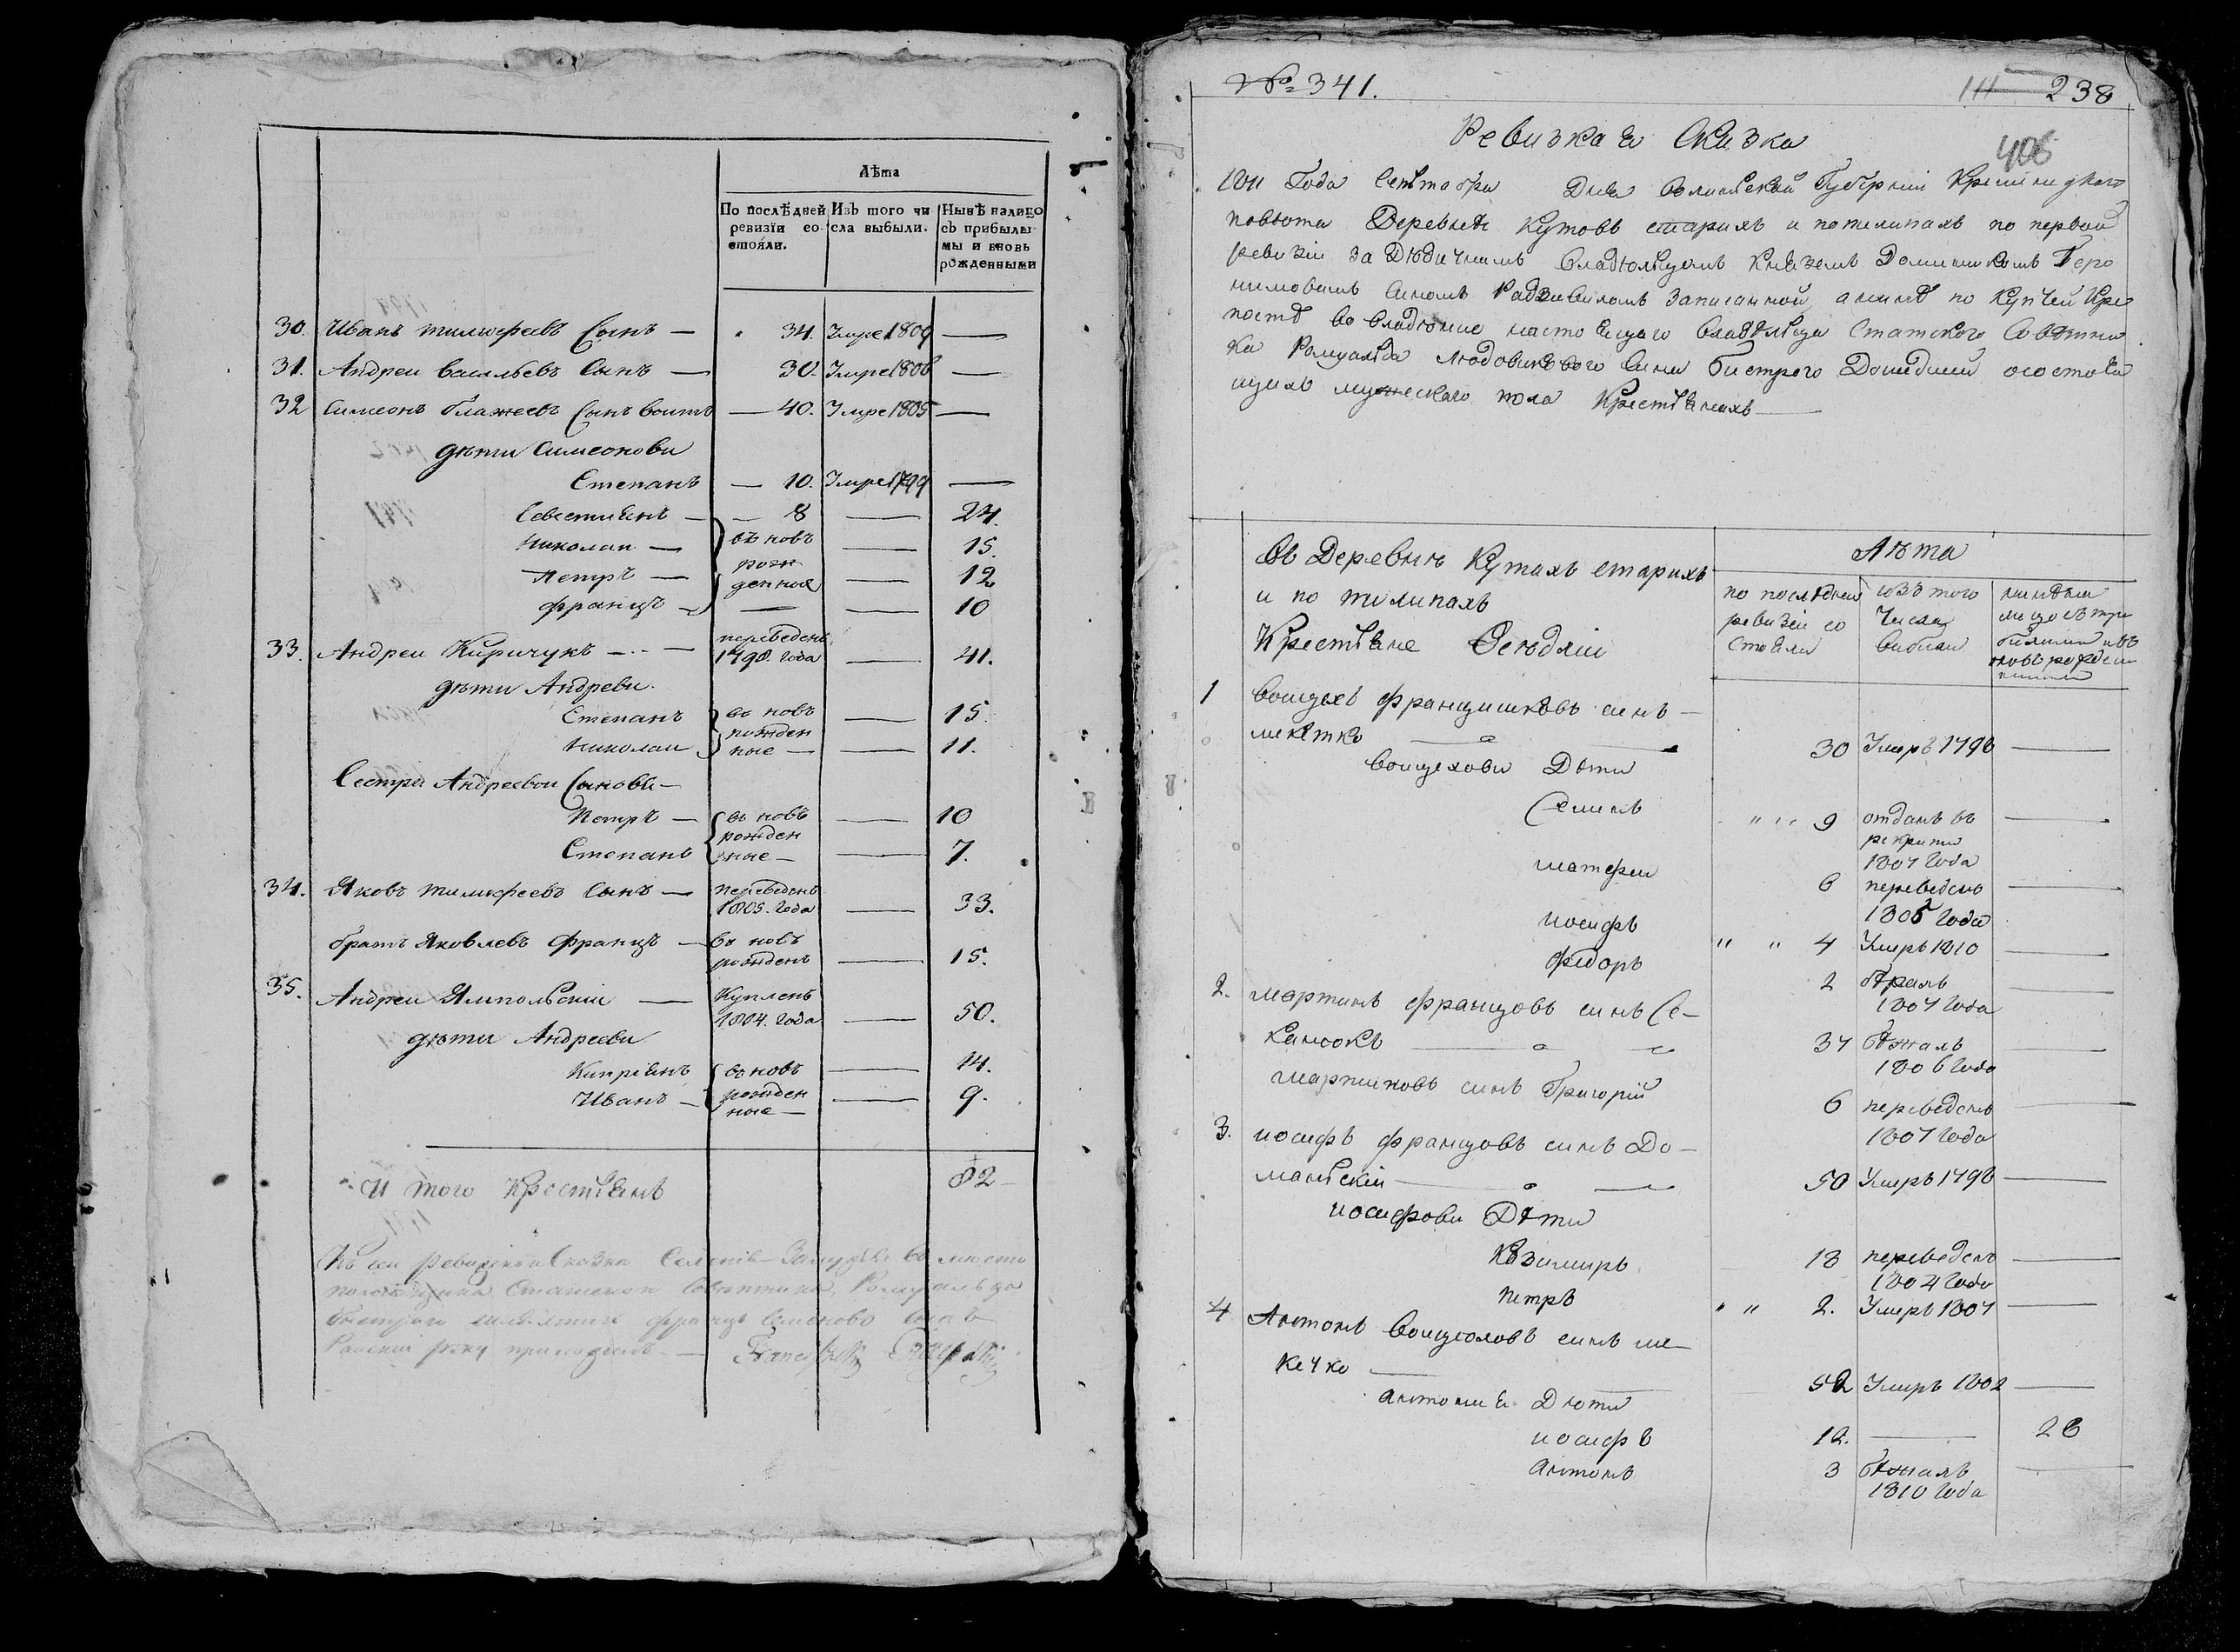 Лѣта
По послѣдней ревизіи состояли.
Изъ того числа выбыли.
Нынѣ налицо съ прибылыми и вновь рожденными
30. Иванъ тимофеевъ Сынъ — 34. Умре 1809 —
31. Андреи васильевъ Сынъ — 30. Умре 1806 —
32 Симеонъ блажеевъ Сынъ воитъ — 40. Умре 1805 —
дѣти Симеонови
Степанъ — 10. Умре 1799 —
Севестиянъ — 8 — 24.
Николаи — въ новь — 15.
Петръ — рожденные — 12
францъ — — 10
33. Андреи Киричукъ — переведенъ 1798. года — 41.
дѣти Андреви.
Степанъ въ новь — 15.
Николаи рожденные — 11.
Сестри Андреевои Сынови —
Петръ — въ новь — 10
Степанъ рожденные — 7.
34. Яковъ тимофеевъ Сынъ — переведенъ 1805. года — 33.
братъ Яковлевъ францъ — въ новь рожденъ — 15.
35. Андреи Ямпольскіи — Купленъ 1804. года — 50.
дѣти Андрееви
Кипріянъ въ новь — 14.
Иванъ — рожденные — 9.
И того Крестьянъ 82
№ 341.
238
406
Ревизкая Сказка
1811 Года Сентабра Дня Волинской Губерніи Кременецкого
повюта Деревнѣ Кутовъ старихъ и потилипахъ по первой
ревизіи за Дѣдичнимъ Владюлцомъ Княземъ Домиником Геро
нимовимъ Синомъ Радзивиломъ записанной, а нинѣ по Купчей Кре
постѣ во Владюние настоящаго Владѣлца Статского Совѣтни
ка Ромуалда Людовикового Сина Бистрого Дошедший о состоя
щихъ мужеского пола Крестьянахъ —
Въ Деревнѣ Кутахъ старихъ
и по тилипахъ
Крестьяне
Лѣта
по послѣднеи ревизіи состояли
изъ того Числа вибили
1 Воицехъ францишковъ синъ —
30 Умеръ 1798 —
Воицехови Дѣти
Семинъ 9 отданъ въ рекрути 1807 Года —
матфеи 6 переведенъ 1805 Года —
иосифъ 4 Умеръ 1810 —
федоръ 2 бѣжалъ 1807 Года —
2. мартинъ францовъ синъ Се-
канюкъ — 37 бѣжалъ 1806 Года —
мартиновъ синъ Григорій 6 переведенъ 1807 Года —
3. иосифъ францовъ синъ До-
манскіи — 50 Умеръ 1798 —
иосифови Дѣти
Казимиръ 18 переведенъ 1804 Года —
петръ 2. Умеръ 1807 —
4 Антонъ Воицеховъ синъ ме-
кечко — 52 Умеръ 1802 —
антония Дѣти
иосифъ 12. — 28
антонъ 3 бѣжалъ 1810 Года —